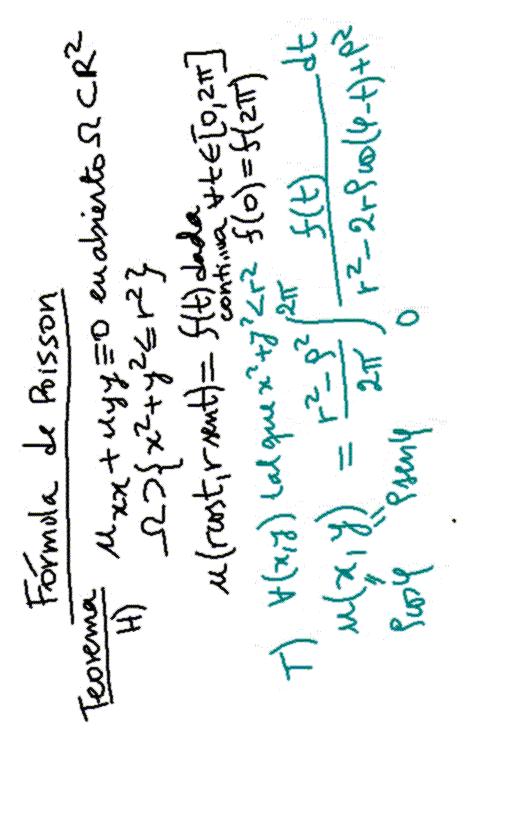 Fórmula de Poisson
Teorema
H) uxx + uyy = 0 en abierto Ω ⊂ R²
Ω ⊃ {x²+y² ≤ r²}
u(r cost, r sent) = f(t) dada
continua ∀t∈[0,2π]
f(0) = f(2π)
T) ∀(x,y) tal que x²+y² < r²
u(x,y) = (r² - ρ²)/2π ∫₀^2π f(t)/(r² - 2rρ cos(φ-t) + ρ²) dt
ρcosφ ρsenφ